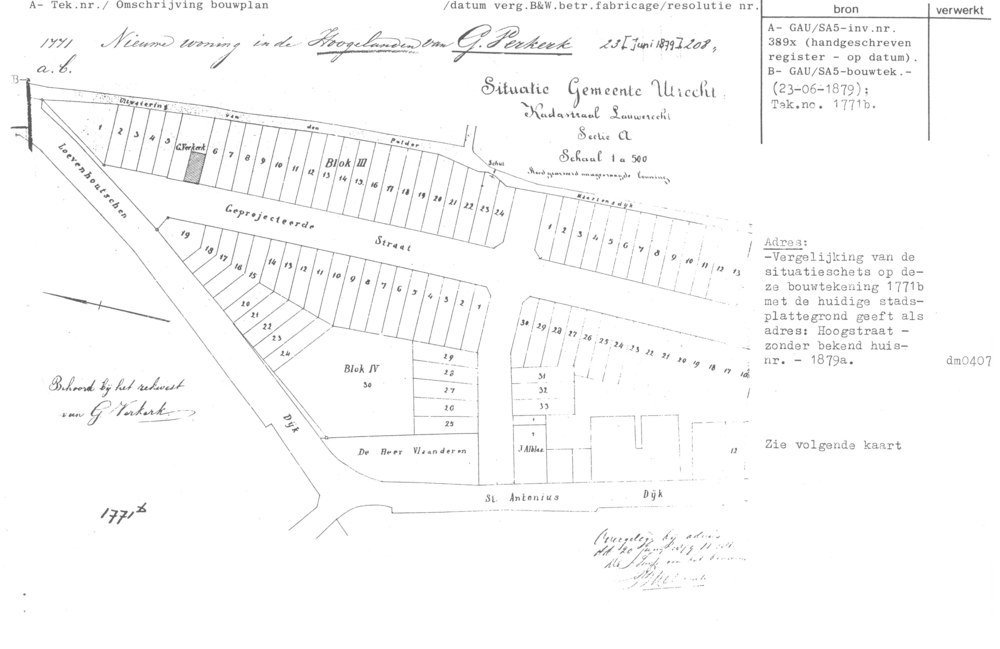 A- Tek.nr./ Omschrijving bouwplan
/datum verg.B&W.betr.fabricage/resolutie nr.
bron
verwerkt
1771 Nieuwe woning in de Hoogelanden van G. Verkerk 23 juni 1879 208,
a.b.
A- GAU/SA5-inv.nr.
389x (handgeschreven
register - op datum).
B- GAU/SA5-bouwtek.-
(23-06-1879);
Tek.no. 1771b.
B-
Situatie Gemeente Utrecht
Kadastraal Lauwerecht
Sectie A
Schaal 1 a 500
Uitwatering van den Polder
Schut
Maartensdijk
1 2 3 4 5 G.Verkerk 6 7 8 9 10 11 12 13 14 15 16 17 18 19 20 21 22 23 24
Blok III
1 2 3 4 5 6 7 8 9 10 11 12 13
Loevenhoutschen
Dijk
Geprojecteerde
Straat
19 18 17 16 15 14 13 12 11 10 9 8 7 6 5 4 3 2 1
20
21
22
23
24
30 29 28 27 26 25 24 23 22 21 20 19 18 17 16
Blok IV
30
29
28
27
26
25
31
32
33
De Heer Vlaanderen
12
St. Antonius
Dijk
Behoord bij het rekwest
van G Verkerk
1771b
Adres:
-Vergelijking van de
situatieschets op de-
ze bouwtekening 1771b
met de huidige stads-
plattegrond geeft als
adres: Hoogstraat -
zonder bekend huis-
nr. - 1879a.
dm0407
Zie volgende kaart